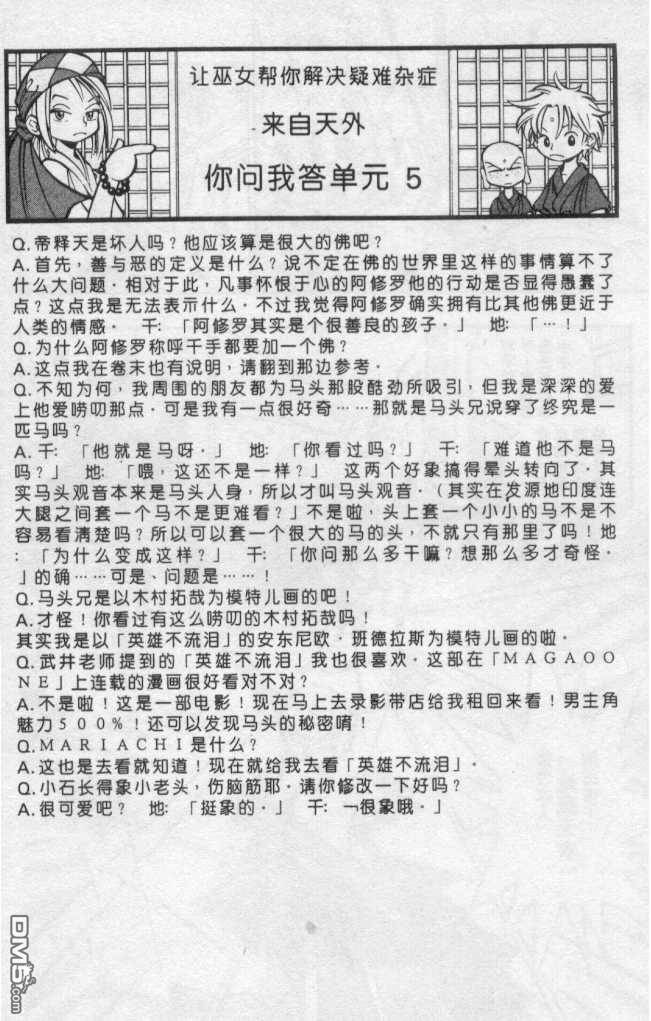 让巫女帮你解决疑难杂症
来自天外
你问我答单元 5
Q.帝释天是坏人吗?他应该算是很大的佛吧?
A.首先,善与恶的定义是什么?说不定在佛的世界里这样的事情算不了
什么大问题.相对于此,凡事怀恨于心的阿修罗他的行动是否显得愚蠢了
点?这点我是无法表示什么.不过我觉得阿修罗确实拥有比其他佛更近于
人类的情感. 千:「阿修罗其实是个很善良的孩子.」 地:「…!」
Q.为什么阿修罗称呼千手都要加一个佛?
A.这点我在卷末也有说明,请翻到那边参考.
Q.不知为何,我周围的朋友都为马头那股酷劲所吸引,但我是深深的爱
上他爱唠叨那点.可是我有一点很好奇……那就是马头兄说穿了终究是一
匹马吗?
A.千:「他就是马呀.」 地:「你看过吗?」 千:「难道他不是马
吗?」 地:「喂,这还不是一样?」 这两个好象搞得晕头转向了.其
实马头观音本来是马头人身,所以才叫马头观音.(其实在发源地印度连
大腿之间套一个马不是更难看?」不是啦,头上套一个小小的马不是不
容易看清楚吗?所以可以套一个很大的马的头,不就只有那里了吗!地
:「为什么变成这样?」 千:「你问那么多干嘛?想那么多才奇怪.
」的确……可是、问题是……!
Q.马头兄是以木村拓哉为模特儿画的吧!
A.才怪!你看过有这么唠叨的木村拓哉吗!
其实我是以「英雄不流泪」的安东尼欧.班德拉斯为模特儿画的啦.
Q.武井老师提到的「英雄不流泪」我也很喜欢.这部在「MAGAOO
NE」上连载的漫画很好看对不对?
A.不是啦!这是一部电影!现在马上去录影带店给我租回来看!男主角
魅力500%!还可以发现马头的秘密唷!
Q.MARIACHI是什么?
A.这也是去看就知道!现在就给我去看「英雄不流泪」.
Q.小石长得象小老头,伤脑筋耶.请你修改一下好吗?
A.很可爱吧? 地:「挺象的.」 千:「很象哦.」
DM5.com